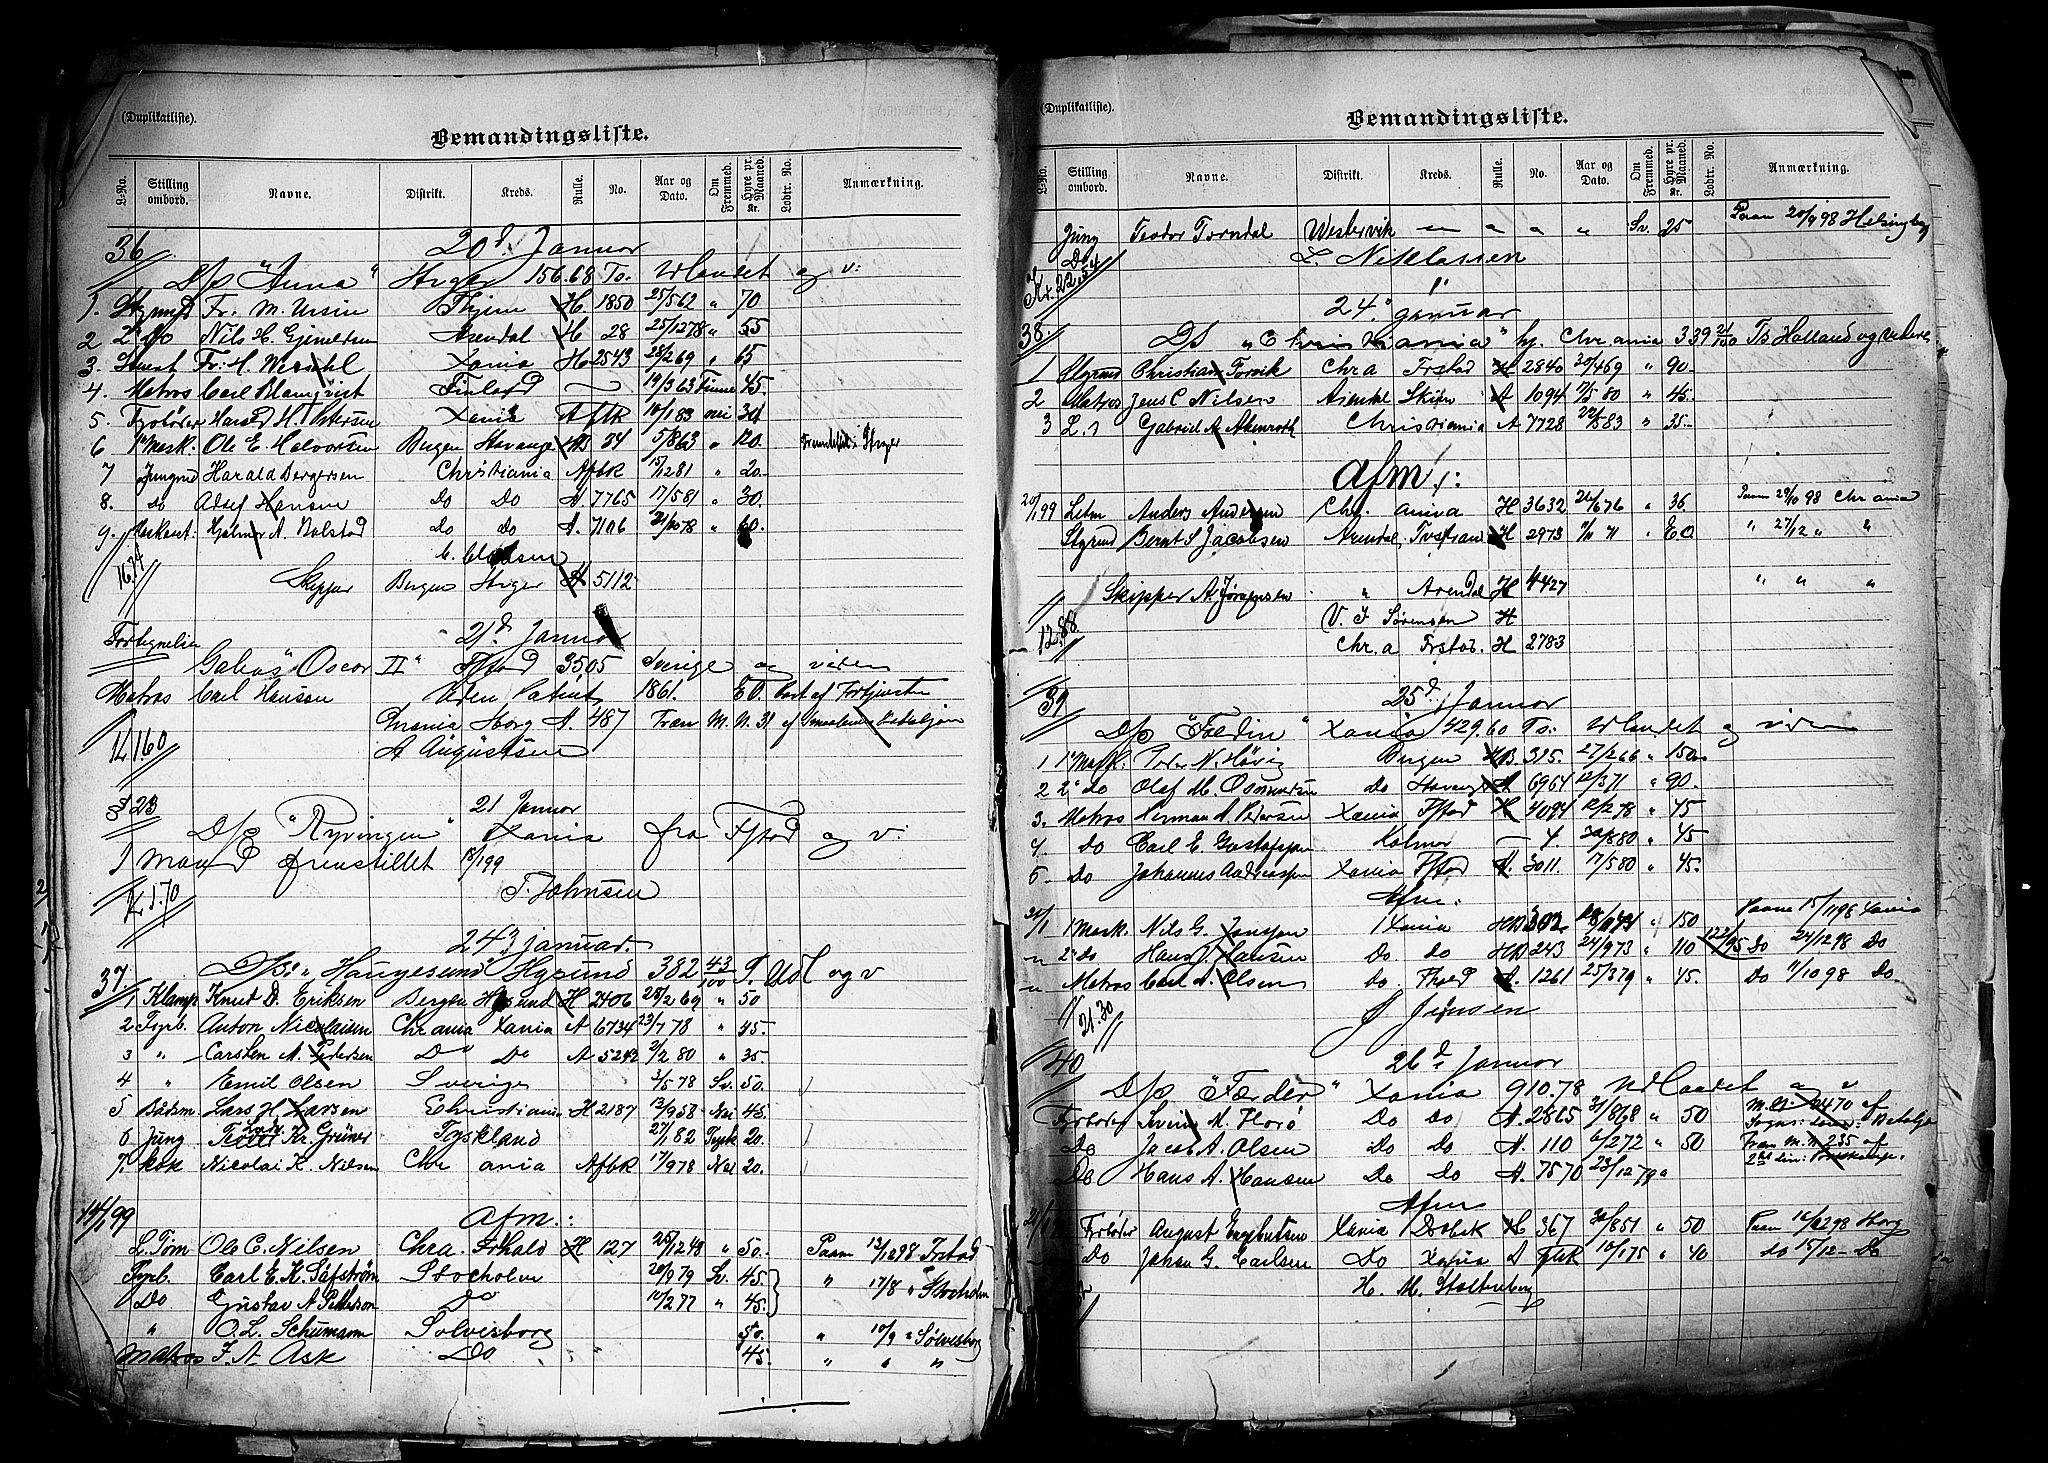 (Duplikatliste).
Bemandingsliste.
L-No. Stilling ombord. Navne. Distrikt. Kreds. Rulle. No. Aar og Dato. Om Fremmed. Hyre pr. Maaned. Kr. Lodtr. No. Anmærkning.
36 20d Januar
D/s "Anna" 156.68 To. Udlandet og v:
1. Styrmd Fr. M. Ursin H 1850 25/5 62 " 70
2 2' Do Nils H. Arendal H 28 25/12 78 " 55
3. Fr. H. Xania H 2543 28/2 69 " 65
4. Matros Carl Blomqvist Finland 19/3 63 Finne 45.
5. Fyrbøder Harald H. Pettersen Xania Afbk 10/1 83 nei 30
6 1' Mask. Ole E. Halvorsen Bergen Stavanger HB 34 5/8 63 " 120.
7 Jungmd Harald Bergersen Christiania Afbk 15/12 81 " 20.
8. Do Adolf Hansen Do Do A. 7765 17/5 81 " 30.
9. Hjalmar A. Bolstad do do A. 7106 21/10 78 " 60.
16.74
Skipper Bergen H 5112
21d Januar
"Oscar II" Fstad 3505 Sverige og viden
Matros Carl Hansen Uden Patent 1861.
Xania A. 487 Fra M. N. 31 af
14.160 A Augustsen
§ 23 21 Januar
D/s "Ryvingen" Xania fra Fstad og v:
1 Mand frenstillet 18/1 99
Kr 5.70 T. Johnsen
24d januar.
37 D/s. "Haugesund" Hgsund 382 43/100 T. Udl og v
1 Klamp Knud D. Eriksen Bergen Hgsund H 2406 28/2 69 " 50
2 Fyrb. Anton Nicolaisen Chr ania Xania A 6734 23/7 78 " 45.
3 " Carsten A. Pedersen Do Do A 5242 2/2 80 " 35
4 " Emil Olsen Sverige 3/5 78 Sv. 50.
5 Bådsm. Lars H. Larsen Christiania H 2187 13/9 58 Nei 45.
6 Jung Ludv. Kr. Grüner Tyskland 27/1 82 Tysk 20.
7. kok Nicolai K. Nilsen Chr ania Afbk 17/9 78 Nei 20.
14/1 99 Afm.:
L. Tøm Ole C. Nilsen Chra. Frhald H 127 25/12 48 " 50. Paam 13/12 98 Frstad
Fyrb. Carl E. K. Säfström Stocholm 20/9 79 Sv. 45. " 17/8 " Stocholm
Do Gustav A Petterson Do 10/2 77 " 45.
" O. L. Schumann Sølvesborg 50. " 10/9 " Sølvesborg
Matros F. A Ask Do 45 " " "
(Duplikatliste).
Bemandingsliste.
L-No. Stilling ombord. Navne. Distrikt. Kreds. Rulle. No. Aar og Dato. Om Fremmed. Hyre pr. Maaned. Kr. Lodtr. No. Anmærkning.
Jung Teodor Torndal Westervik " " " " Sv. 25 Paam 20/9 98 Helsingborg
Kr. 22.54 L. Niklassen
24d januar
38. D/s "Christiania" hj. Chr ania 339 21/100 Ts Holland og videre
1 Styrmd Christian Torvik Chr a Frstad H 2840 30/4 69 " 90.
2 Matros Jens C Nilsen Arendal Skien A 1094 17/5 80 " 45.
3 L. 1 Gabriel A. Akenroth Christiania A 7728 22/5 83 " 35.
Afm.:
20/1 99 Letm Anders Andersen Chr. ania H 3632 26/6 76 " 36 Paam 29/10 98 Chr ania
Styrmd Bernt S Jacobsen Arendal H 2973 " 80 " 27/12 " "
Skipper A Jørgensen " Arendal H 4427 " " "
12.88 V. F Sørensen H
Chr. a Frstad. H 2783
39 25d Januar
D/s Xania 429.60 To: Udlandet og viden
1 1' Mask. Peder N. Høvig Bergen HB. 315. 27/2 66 " 150
2 2' do Olaf M. Osmundsen Do Stavanger A 6964 12/3 71 " 90.
3. Matros Herman A Pedersen Xania Fstad H 4094 12/2 78 " 45
4. Do Carl E. Gustafsson Kalmar 4. 30/8 80 " 45
5 Do Johannes Andreassen Xania Fstad A. 3011. 17/5 80 " 45.
Afm:
21/1 1 Mask. Nils G. Jonsson Xania HB 302 " 150 Paam 15/11 98 Xania
" 2' do Hans J. Hansen Do do HB 243 24/9 73 " 110 122/95 Do 24/12 98 Do
" Matros Carl A. Olsen do. A. 1261 25/3 79 " 45. Do 11/10 98 Do
21.30 J Jensen
40 26d Januar
D/s "Færder" Xania 910.78 Udlandet og v
Fyrbøder Svein M. Do Do A. 2865 31/8 68 " 50 M. N. 2470 af
Do Jacob A. Olsen Do Do A. 110 6/2 72 " 50 Fra M. N. 235 af
Do Hans A. Hansen Do Do A. 7570 23/12 79 "
Afm
Fyrbøder August Engebretsen Xania Drbak H 367 30/8 51 " 50 Paam 16/12 98
Do Johan G. Carlsen Do Xania A Fbk 10/1 75 " 40 do 15/12 - Do
H. M. Stoltenberg